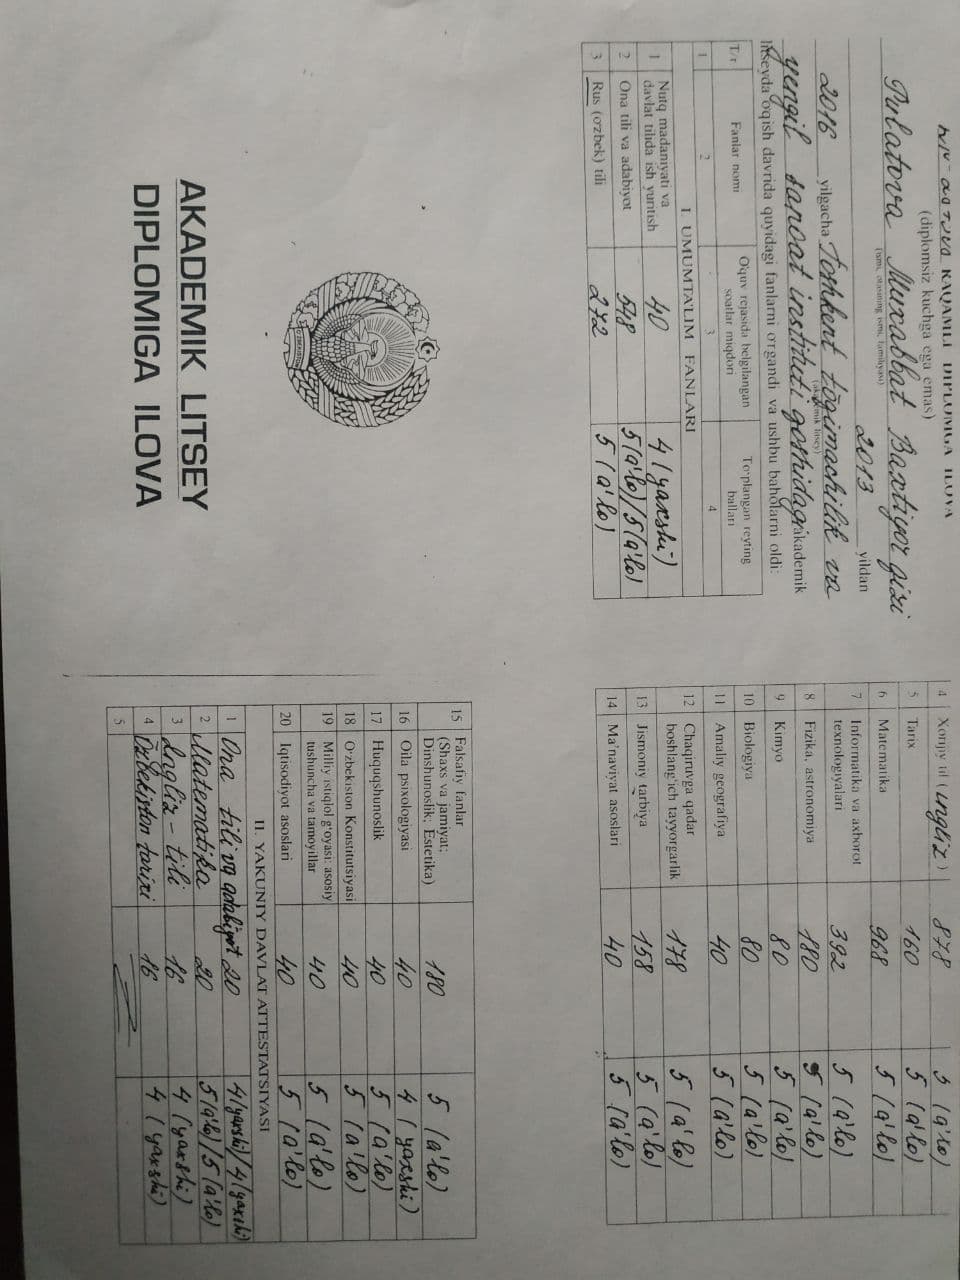 RAQAMLI DIPLOMGA ILOVA
(diplomsiz kuchga ega emas)
Pulatova Muxabbat Baxtiyor qizi
(ismi, otasining ismi, familiyasi)
2013 yildan
2016 yilgacha Toshkent to'qimachilik va
(akademik litsey)
yengil sanoat instituti qoshidagi akademik
litseyda o'qish davrida quyidagi fanlarni o'rgandi va ushbu baholarni oldi:
T/r Fanlar nomi O'quv rejasida belgilangan soatlar miqdori To'plangan reyting ballari
1 2 3 4
I. UMUMTA'LIM FANLARI
1 Nutq madaniyati va davlat tilida ish yuritish 40 4 (yaxshi)
2 Ona tili va adabiyot 548 5(a'lo)/5(a'lo)
3 Rus (o'zbek) tili 272 5 (a'lo)
AKADEMIK LITSEY
DIPLOMIGA ILOVA
4 Xorijiy til (ingliz) 878 5 (a'lo)
5 Tarix 160 5 (a'lo)
6 Matematika 968 5 (a'lo)
7 Informatika va axborot texnologiyalari 392 5 (a'lo)
8 Fizika, astronomiya 180 5 (a'lo)
9 Kimyo 80 5 (a'lo)
10 Biologiya 80 5 (a'lo)
11 Amaliy geografiya 40 5 (a'lo)
12 Chaqiruvga qadar boshlang'ich tayyorgarlik 178 5 (a'lo)
13 Jismoniy tarbiya 158 5 (a'lo)
14 Ma'naviyat asoslari 40 5 (a'lo)
15 Falsafiy fanlar (Shaxs va jamiyat; Dinshunoslik; Estetika) 180 5 (a'lo)
16 Oila psixologiyasi 40 4 (yaxshi)
17 Huquqshunoslik 40 5 (a'lo)
18 O'zbekiston Konstitutsiyasi 40 5 (a'lo)
19 Milliy istiqlol g'oyasi: asosiy tushuncha va tamoyillar 40 5 (a'lo)
20 Iqtisodiyot asoslari 40 5 (a'lo)
II. YAKUNIY DAVLAT ATTESTATSIYASI
1 Ona tili va adabiyot 20 4(yaxshi)/4(yaxshi)
2 Matematika 20 5(a'lo)/5(a'lo)
3 Ingliz-tili 16 4 (yaxshi)
4 O'zbekiston tarixi 16 4 (yaxshi)
5